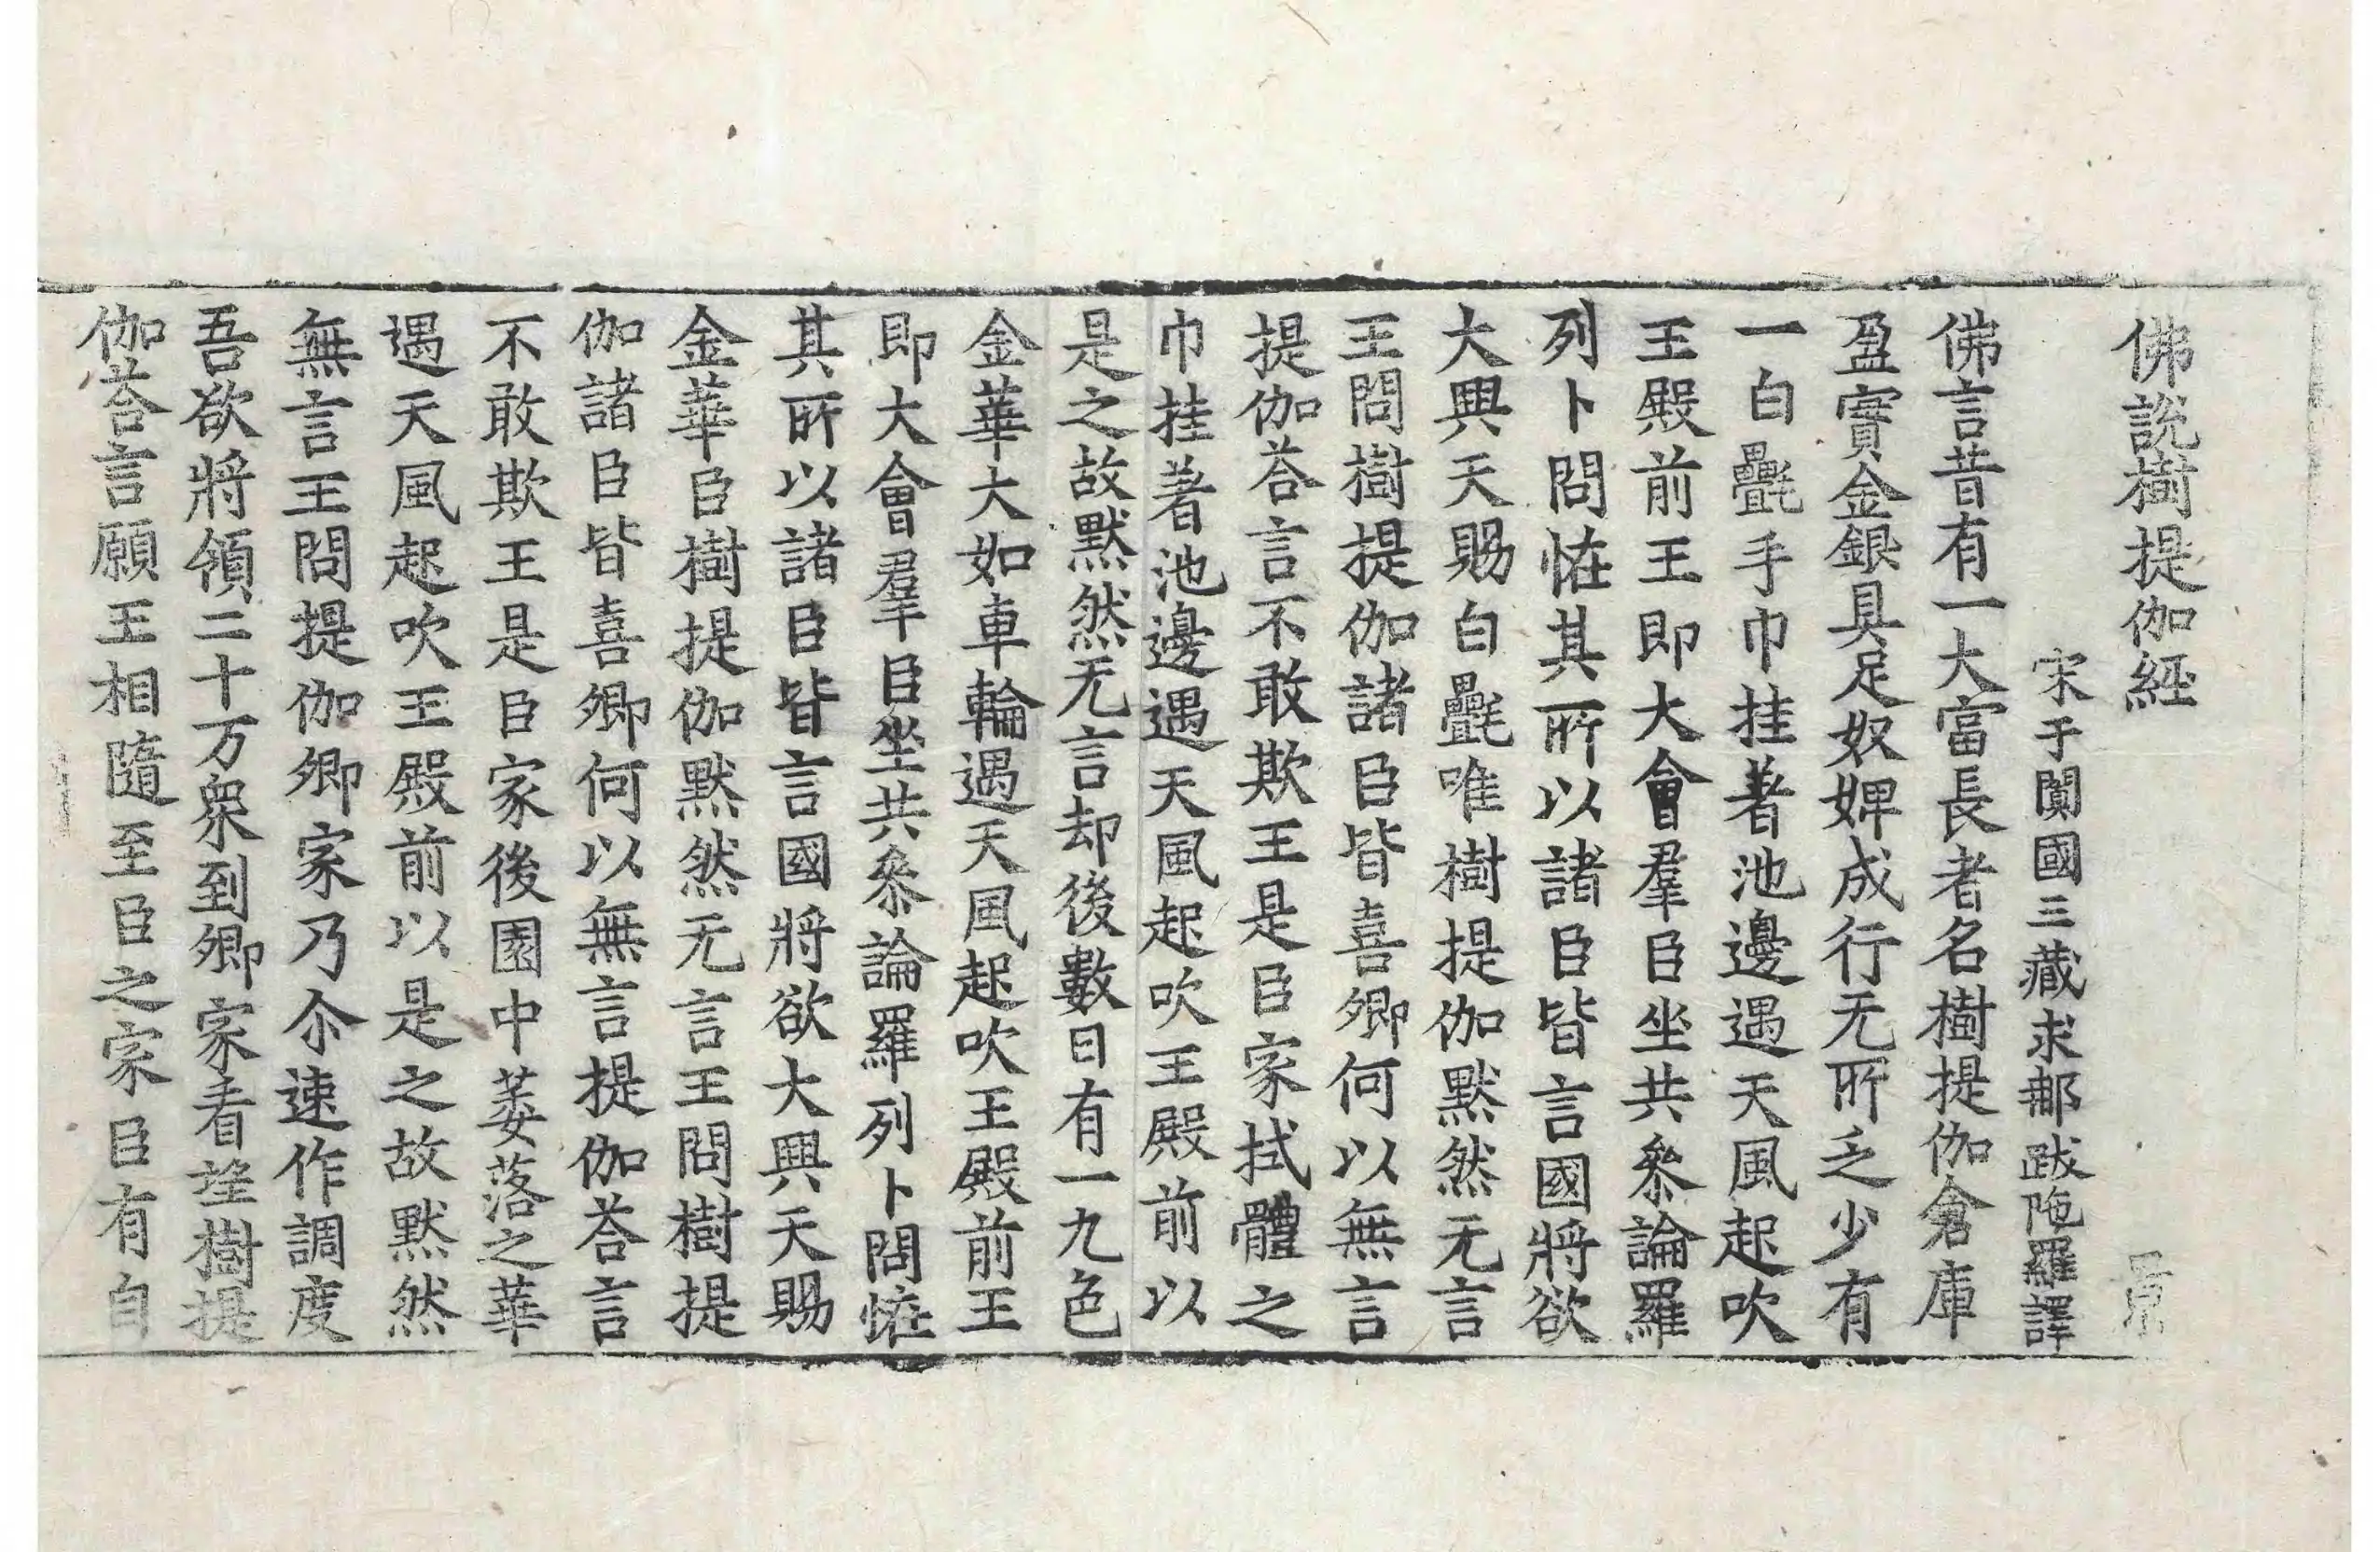 佛說樹提伽經 景
宋于闐國三藏求那跋陁羅譯
佛言昔有一大富長者名樹提伽倉庫
盈實金銀具足奴婢成行无所乏少有
一白㲲手巾挂著池邊遇天風起吹
王殿前王即大會羣臣坐共叅論羅
列卜問恠其所以諸臣皆言國將欲
大興天賜白㲲唯樹提伽默然无言
王問樹提伽諸臣皆喜卿何以無言
提伽荅言不敢欺王是臣家拭體之
巾挂著池邊遇天風起吹王殿前以
是之故默然无言却後數日有一九色
金華大如車輪遇天風起吹王殿前王
即大會羣臣坐共叅論羅列卜問恠
其所以諸臣皆言國將欲大興天賜
金華臣樹提伽默然无言王問樹提
伽諸臣皆喜卿何以無言提伽荅言
不敢欺王是臣家後園中萎落之華
遇天風起吹王殿前以是之故默然
無言王問提伽卿家乃尒速作調度
吾欲將領二十万衆到卿家看望樹提
伽荅言願王相隨至臣之家臣有自